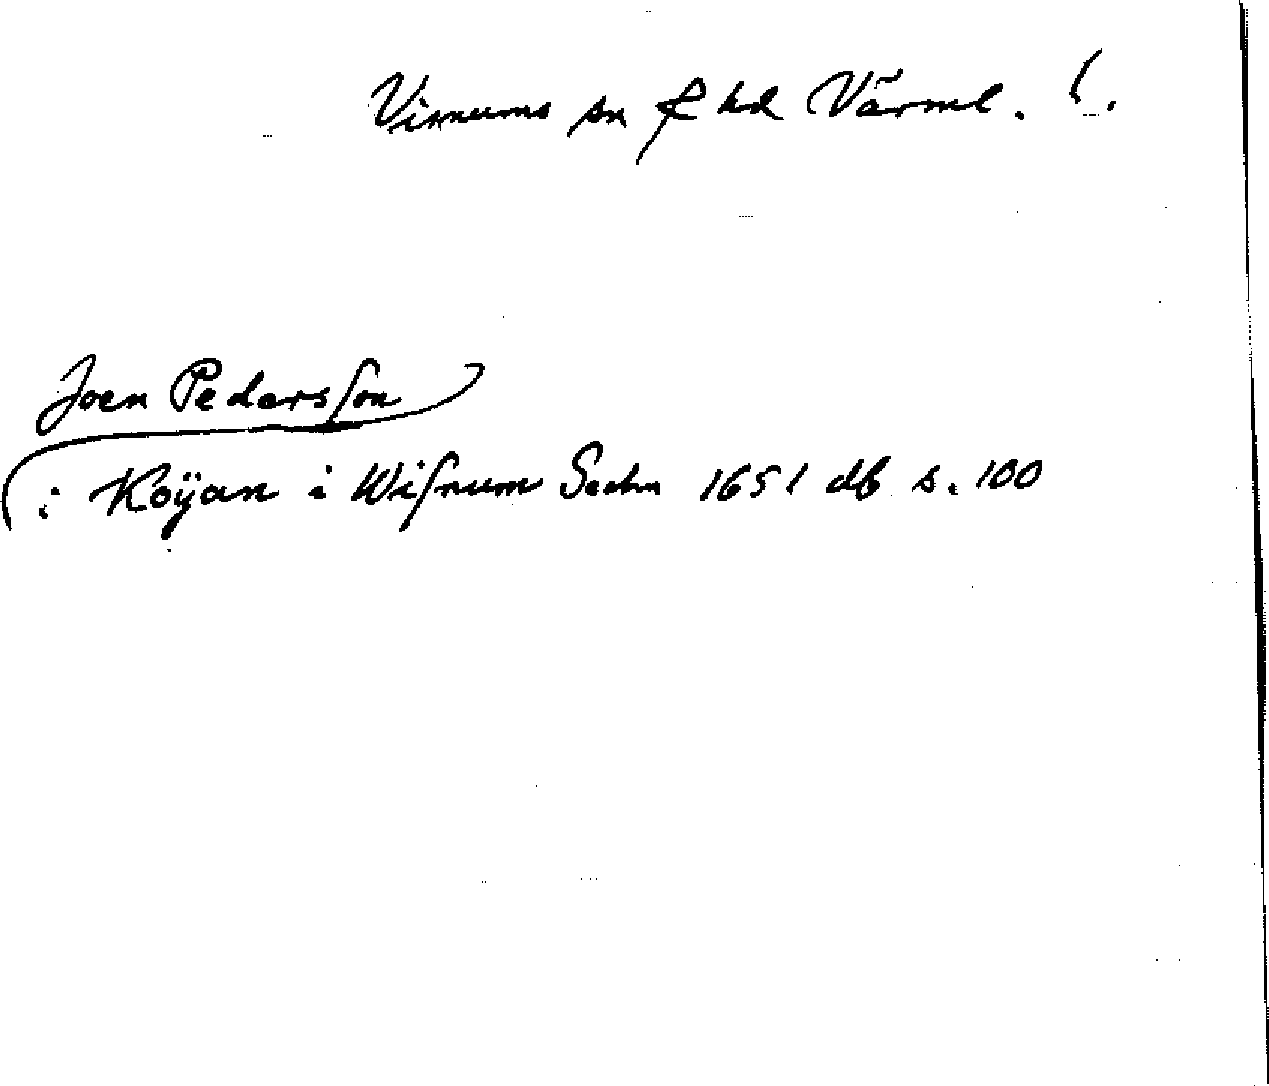 Visnums sn f hd Värml. l.
Joen Pedersson
i Koÿan i Wisnum Sochn 1651 db s. 100